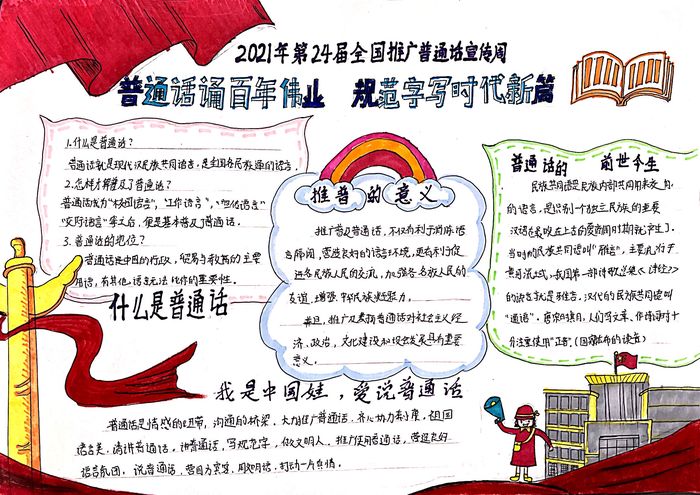 2021年第24届全国推广普通话宣传周
普通话诵百年伟业 规范字写时代新篇
1.什么是普通话?
普通话就是现代汉民族共同语言,是全国各民族通的语言.
2.怎样才算普及了普通话?
普通话成为"校园语言","工作语言","宣传语言"
"交际语言"等之后,便是基本普及了普通话.
3.普通话的地位?
普通话是中国的行政,贸易与教育的主要
用语,有其他语言无法比你的重要性.
什么是普通话
推普的意义
推广普及普通话,不仅有利于消除语
言隔阂,营造良好的语言环境,更有利于促
进各民族人民的交流,加强各民族人民的
友谊,增强中华民族凝聚力.
并且,推广及普及普通话对社会主义经
济、政治,文化建设和设会发展具有重要
意义.
普通话的 前世今生
民族共同语是民族内部共同用来交际
的语言,是识别一个独立民族的主要
当时的民族共同语叫"雅言",主要流行于
黄河流域,我国第一部诗歌总集《诗经》
的语言就是雅言.汉代的民族共同语叫
"通语".唐宋时期,人们写文章、作诗词十
分注重使用"正音"(国家颁布的读音)
我是中国娃,爱说普通话
普通话是情感的纽带,沟通的桥梁.大力推广普通话,齐心协力奔小康.祖国
语言美,请讲普通话,讲普通话,写规范字,做文明人.推广使用普通话,营造良好
语言氛围.说普通话,迎四方宾客,用文明语,打动一片真情.